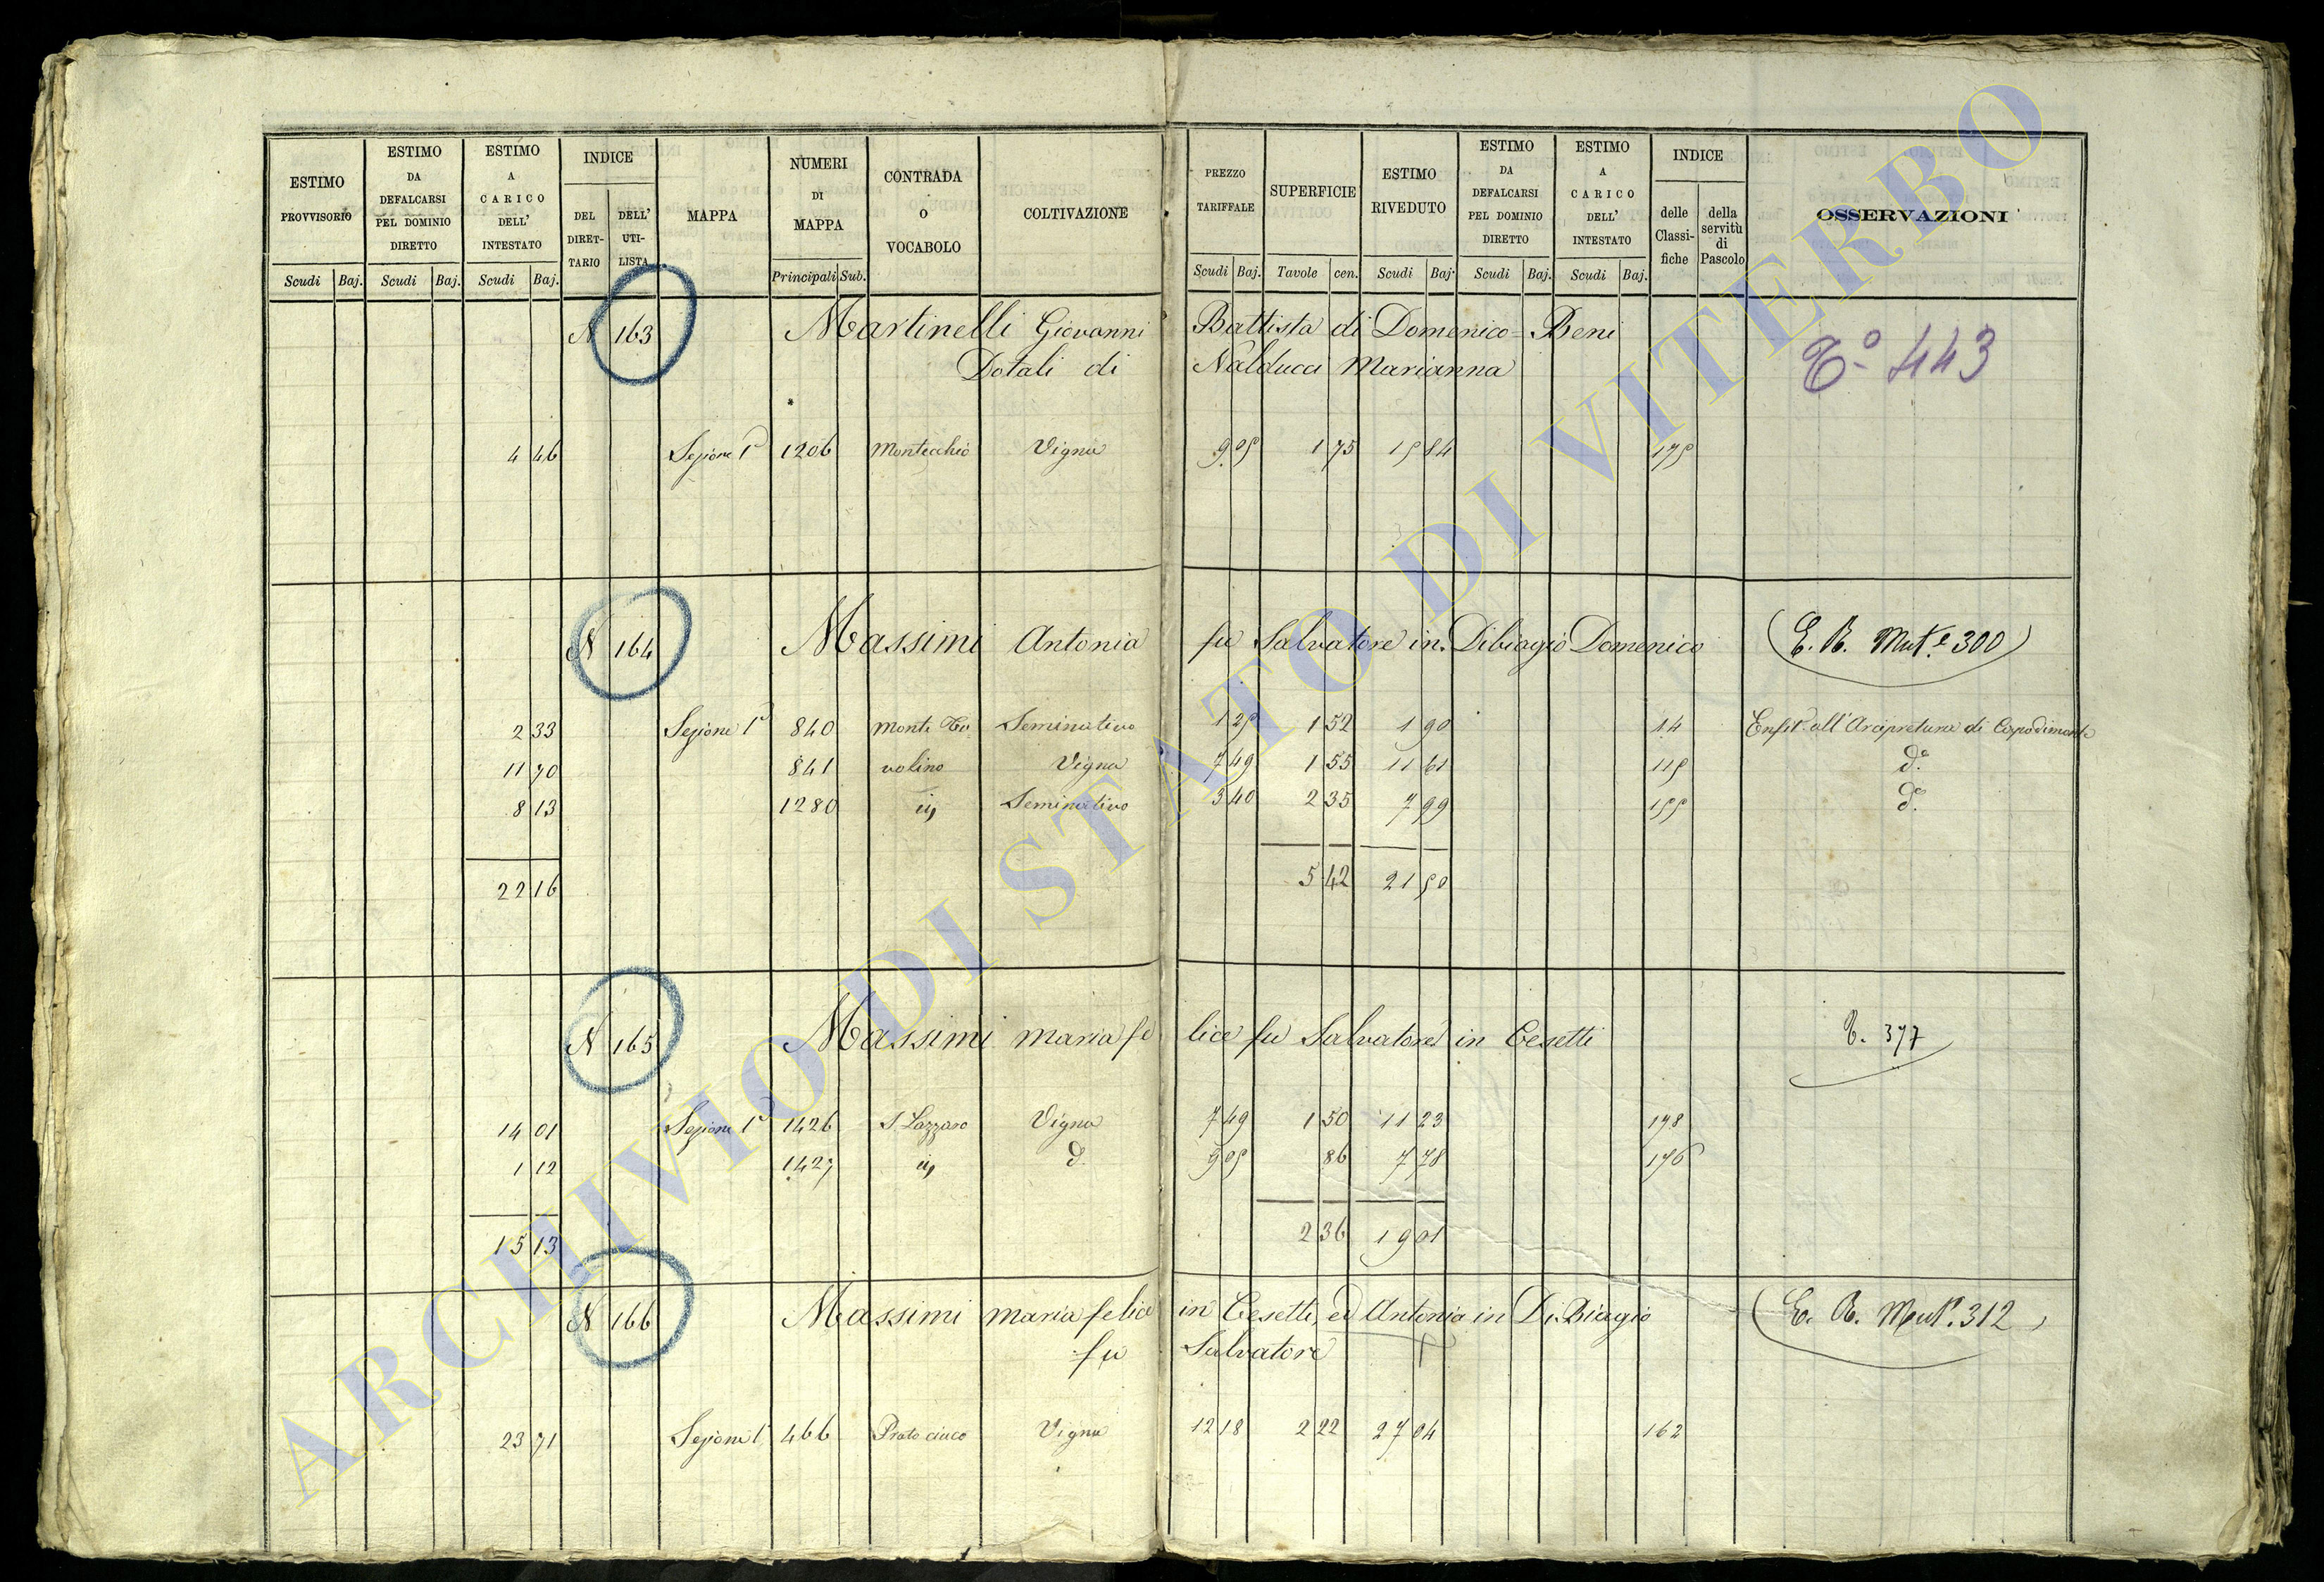 ESTIMO PROVVISORIO
ESTIMO DA DEFALCARSI PEL DOMINIO DIRETTO
ESTIMO A CARICO DELL' INTESTATO
INDICE
DEL DIRET-TARIO
DELL' UTI-LISTA
MAPPA
NUMERI DI MAPPA
CONTRADA O VOCABOLO
COLTIVAZIONE
PREZZO TARIFFALE
SUPERFICIE
ESTIMO RIVEDUTO
ESTIMO DA DEFALCARSI PEL DOMINIO DIRETTO
ESTIMO A CARICO DELL' INTESTATO
INDICE
delle Classi-fiche
della servitù di Pascolo
OSSERVAZIONI
Scudi Baj. Scudi Baj. Scudi Baj. Principali Sub. Scudi Baj. Tavole cen. Scudi Baj. Scudi Baj. Scudi Baj.
N 163 Martinelli Giovanni Battista di Domenico - Beni
Dotali di Nalducci Marianna
To 443
4 46 Sezione 1a 1206 Montecchio Vigna 9 05 1 75 15 84 175
N 164 Massimi Antonia fu Salvatore in Dibiagio Domenico (E. R. Mut.e 300)
2 33 Sezione 1a 840 Monte Bo Seminativo 1 25 1 52 1 90 14 Enfit. all' Arcipretura di Capodimonte
11 70 841 volino Vigna 7 49 1 55 11 61 115 da.
8 13 1280 iij Seminativo 3 40 2 35 7 99 155 da.
22 16 5 42 21 50
N 165 Massimi Maria felice fu Salvatore in Cesetti
T. 377
14 01 Sezione 1a 1426 S Lazzaro Vigna 7 49 1 50 11 23 178
1 12 1427 iij d. 9 05 86 7 78 176
15 13 2 36 19 01
N 166 Massimi Maria felice in Cesetti, ed Antonia in Di Biagio (E. R. Mut. 312)
fu Salvatore
23 71 Sezione 1a 466 Prato cieco Vigna 12 18 2 22 27 04 162
ARCHIVIO DI STATO DI VITERBO